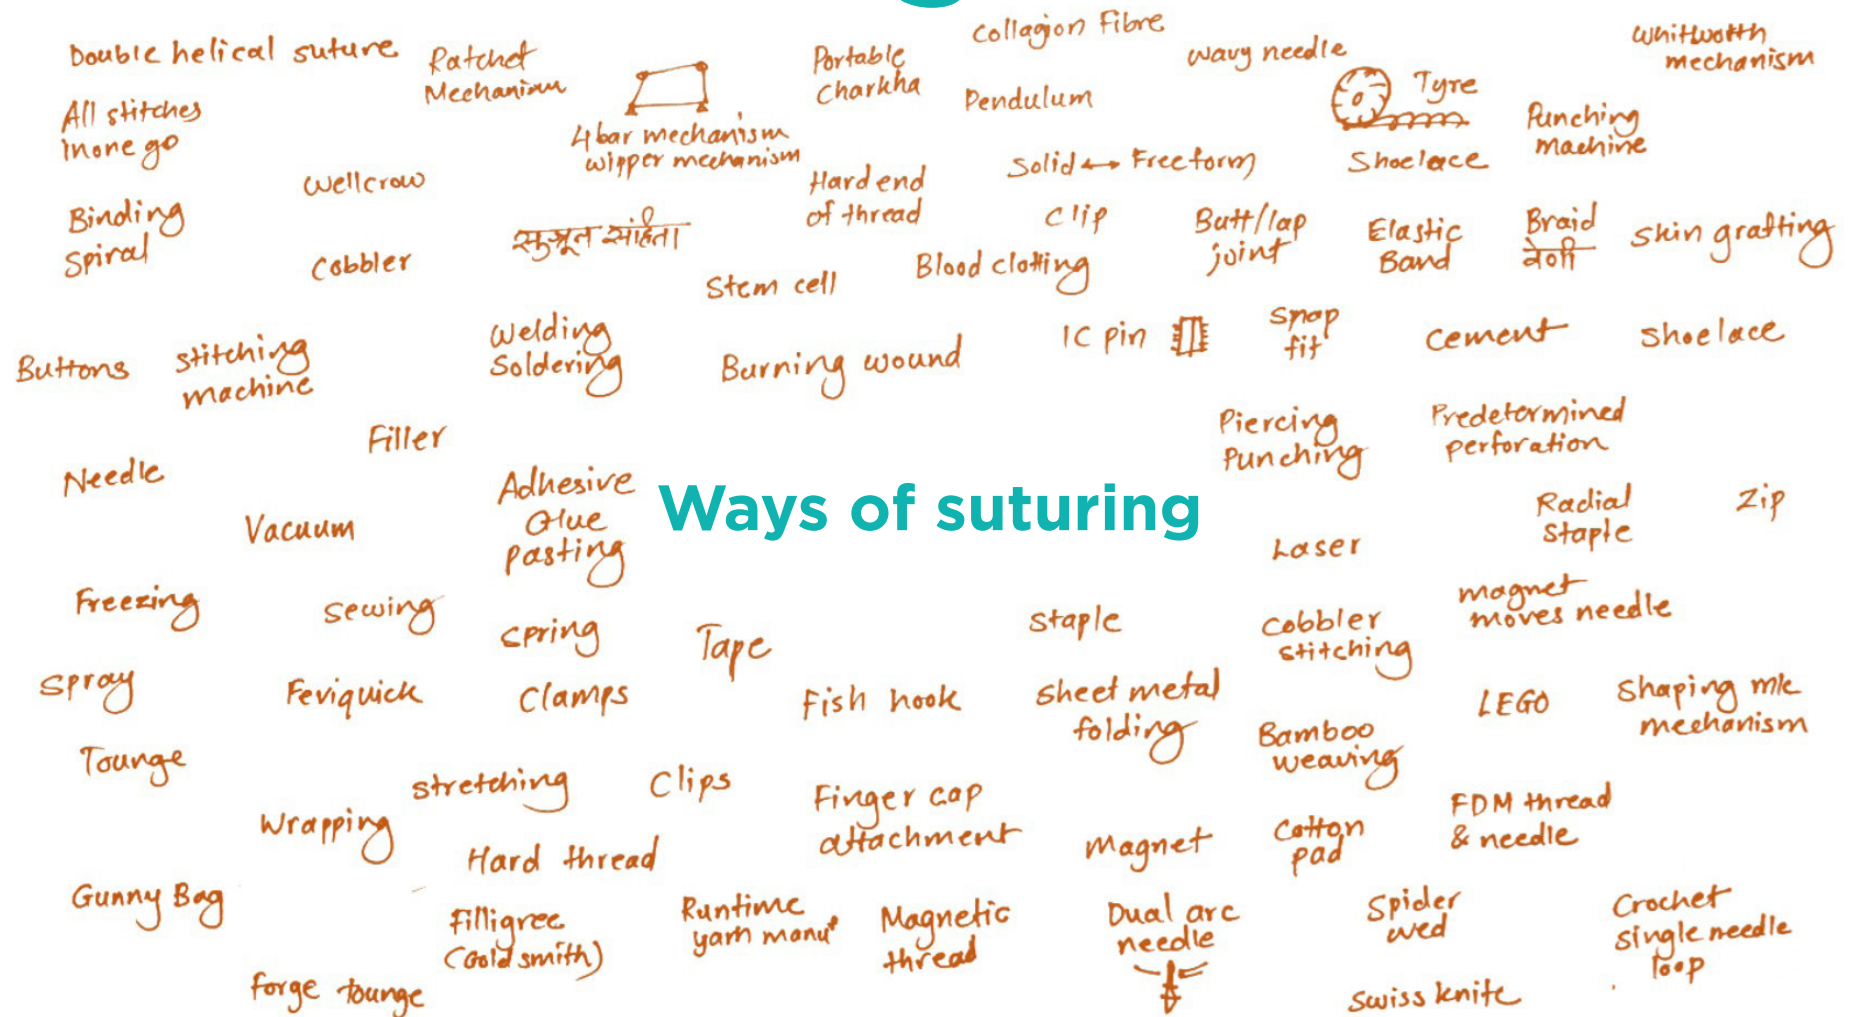 Double helical suture
Ratchet
Mechanism
Portable
Charkha
Collagion Fibre
Wavy needle
Whitworth
mechanism
All stitches
in one go
4 bar mechanism
wipper mechanism
Pendulum
Tyre
Punching
machine
Wellcrow
Hard end
of thread
Solid ↔ Freeform
Shoelace
Binding
Spiral
Cobbler
सुश्रूत संहिता
Stem cell
Blood clotting
Clip
Butt/lap
joint
Elastic
Band
Braid
वेणी
Skin grafting
Buttons
Stitching
machine
Welding
Soldering
Burning wound
IC pin
Snap
fit
Cement
Shoelace
Filler
Piercing
Punching
Predetermined
perforation
Needle
Vacuum
Adhesive
Glue
pasting
Ways of suturing
Laser
Radial
Staple
Zip
Freezing
Sewing
Spring
Tape
Staple
Cobbler
stitching
magnet
moves needle
Spray
Feviquick
Clamps
Fish hook
Sheet metal
folding
Bamboo
weaving
LEGO
Shaping m/c
mechanism
Tounge
Stretching
Clips
Finger cap
attachment
Magnet
Cotton
pad
FDM thread
& needle
Wrapping
Hard thread
Gunny Bag
Filligree
(Gold smith)
Runtime
yarn manuf
Magnetic
thread
Dual arc
needle
Spider
wed
Crochet
single needle
loop
Forge tounge
Swiss knife